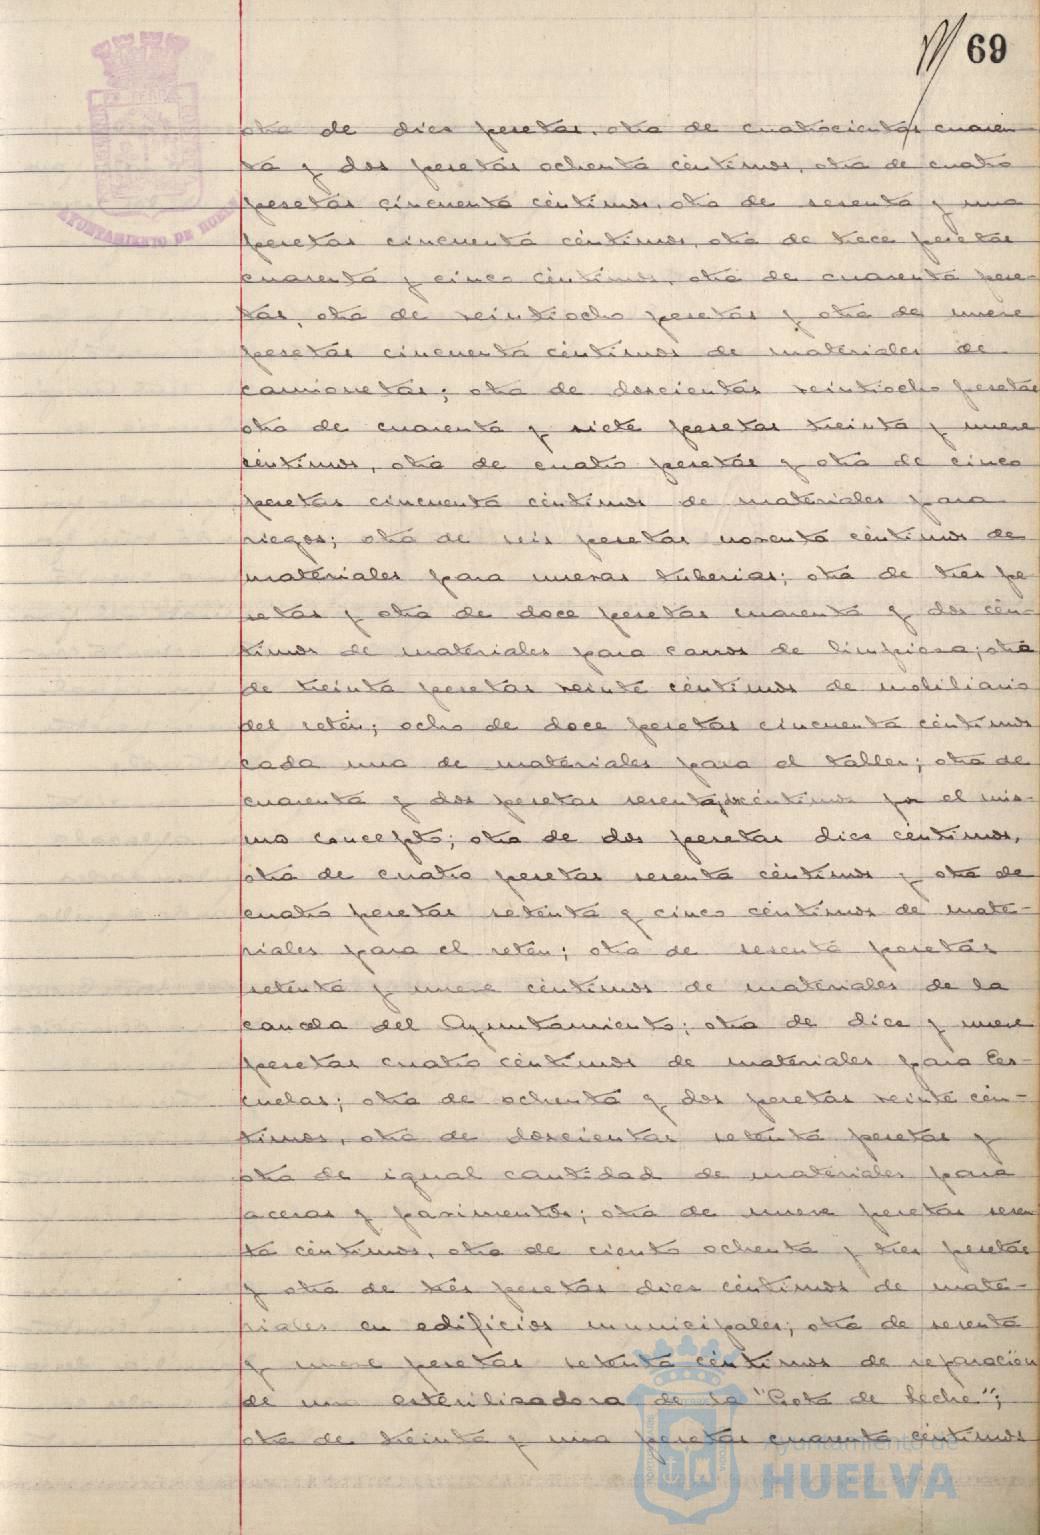 69
otra de diez pesetas, otra de cuatrocientas cuaren-
ta y dos pesetas ochenta céntimos, otra de cuatro
pesetas cincuenta céntimos, otra de sesenta y una
pesetas cincuenta céntimos, otra de trece pesetas
cuarenta y cinco céntimos, otra de cuarenta pese-
tas, otra de veintiocho pesetas y otra de nueve
pesetas cincuenta céntimos de materiales de
camionetas; otra de doscientas veintiocho pesetas
otra de cuarenta y siete pesetas treinta y nueve
céntimos, otra de cuatro pesetas y otra de cinco
pesetas cincuenta céntimos de materiales para
riegos; otra de seis pesetas noventa céntimos de
materiales para nuevas tuberias; otra de tres pe-
setas y otra de doce pesetas cuarenta y dos cén-
timos de materiales para carros de limpieza; otra
de treinta pesetas veinte céntimos de mobiliario
del retén; ocho de doce pesetas cincuenta céntimos
cada una de materiales para el taller; otra de
cuarenta y dos pesetas sesenta céntimos por el mis-
mo concepto; otra de dos pesetas diez céntimos,
otra de cuatro pesetas sesenta céntimos y otra de
cuatro pesetas setenta y cinco céntimos de mate-
riales para el retén; otra de sesenta pesetas
setenta y nueve céntimos de materiales de la
cancela del Ayuntamiento; otra de diez y nueve
pesetas cuatro céntimos de materiales para Es-
cuelas; otra de ochenta y dos pesetas veinte cén-
timos, otra de doscientas setenta pesetas y
otra de igual cantidad de materiales para
aceras y pavimentos; otra de nueve pesetas sesen
ta céntimos, otra de ciento ochenta y tres pesetas
y otra de tres pesetas diez céntimos de mate-
riales en edificios municipales; otra de sesenta
y nueve pesetas setenta céntimos de reparación
de una esterilizadora de la "Gota de Leche";
otra de treinta y una pesetas cuarenta céntimos
AYUNTAMIENTO DE HUELVA
Ayuntamiento de
HUELVA